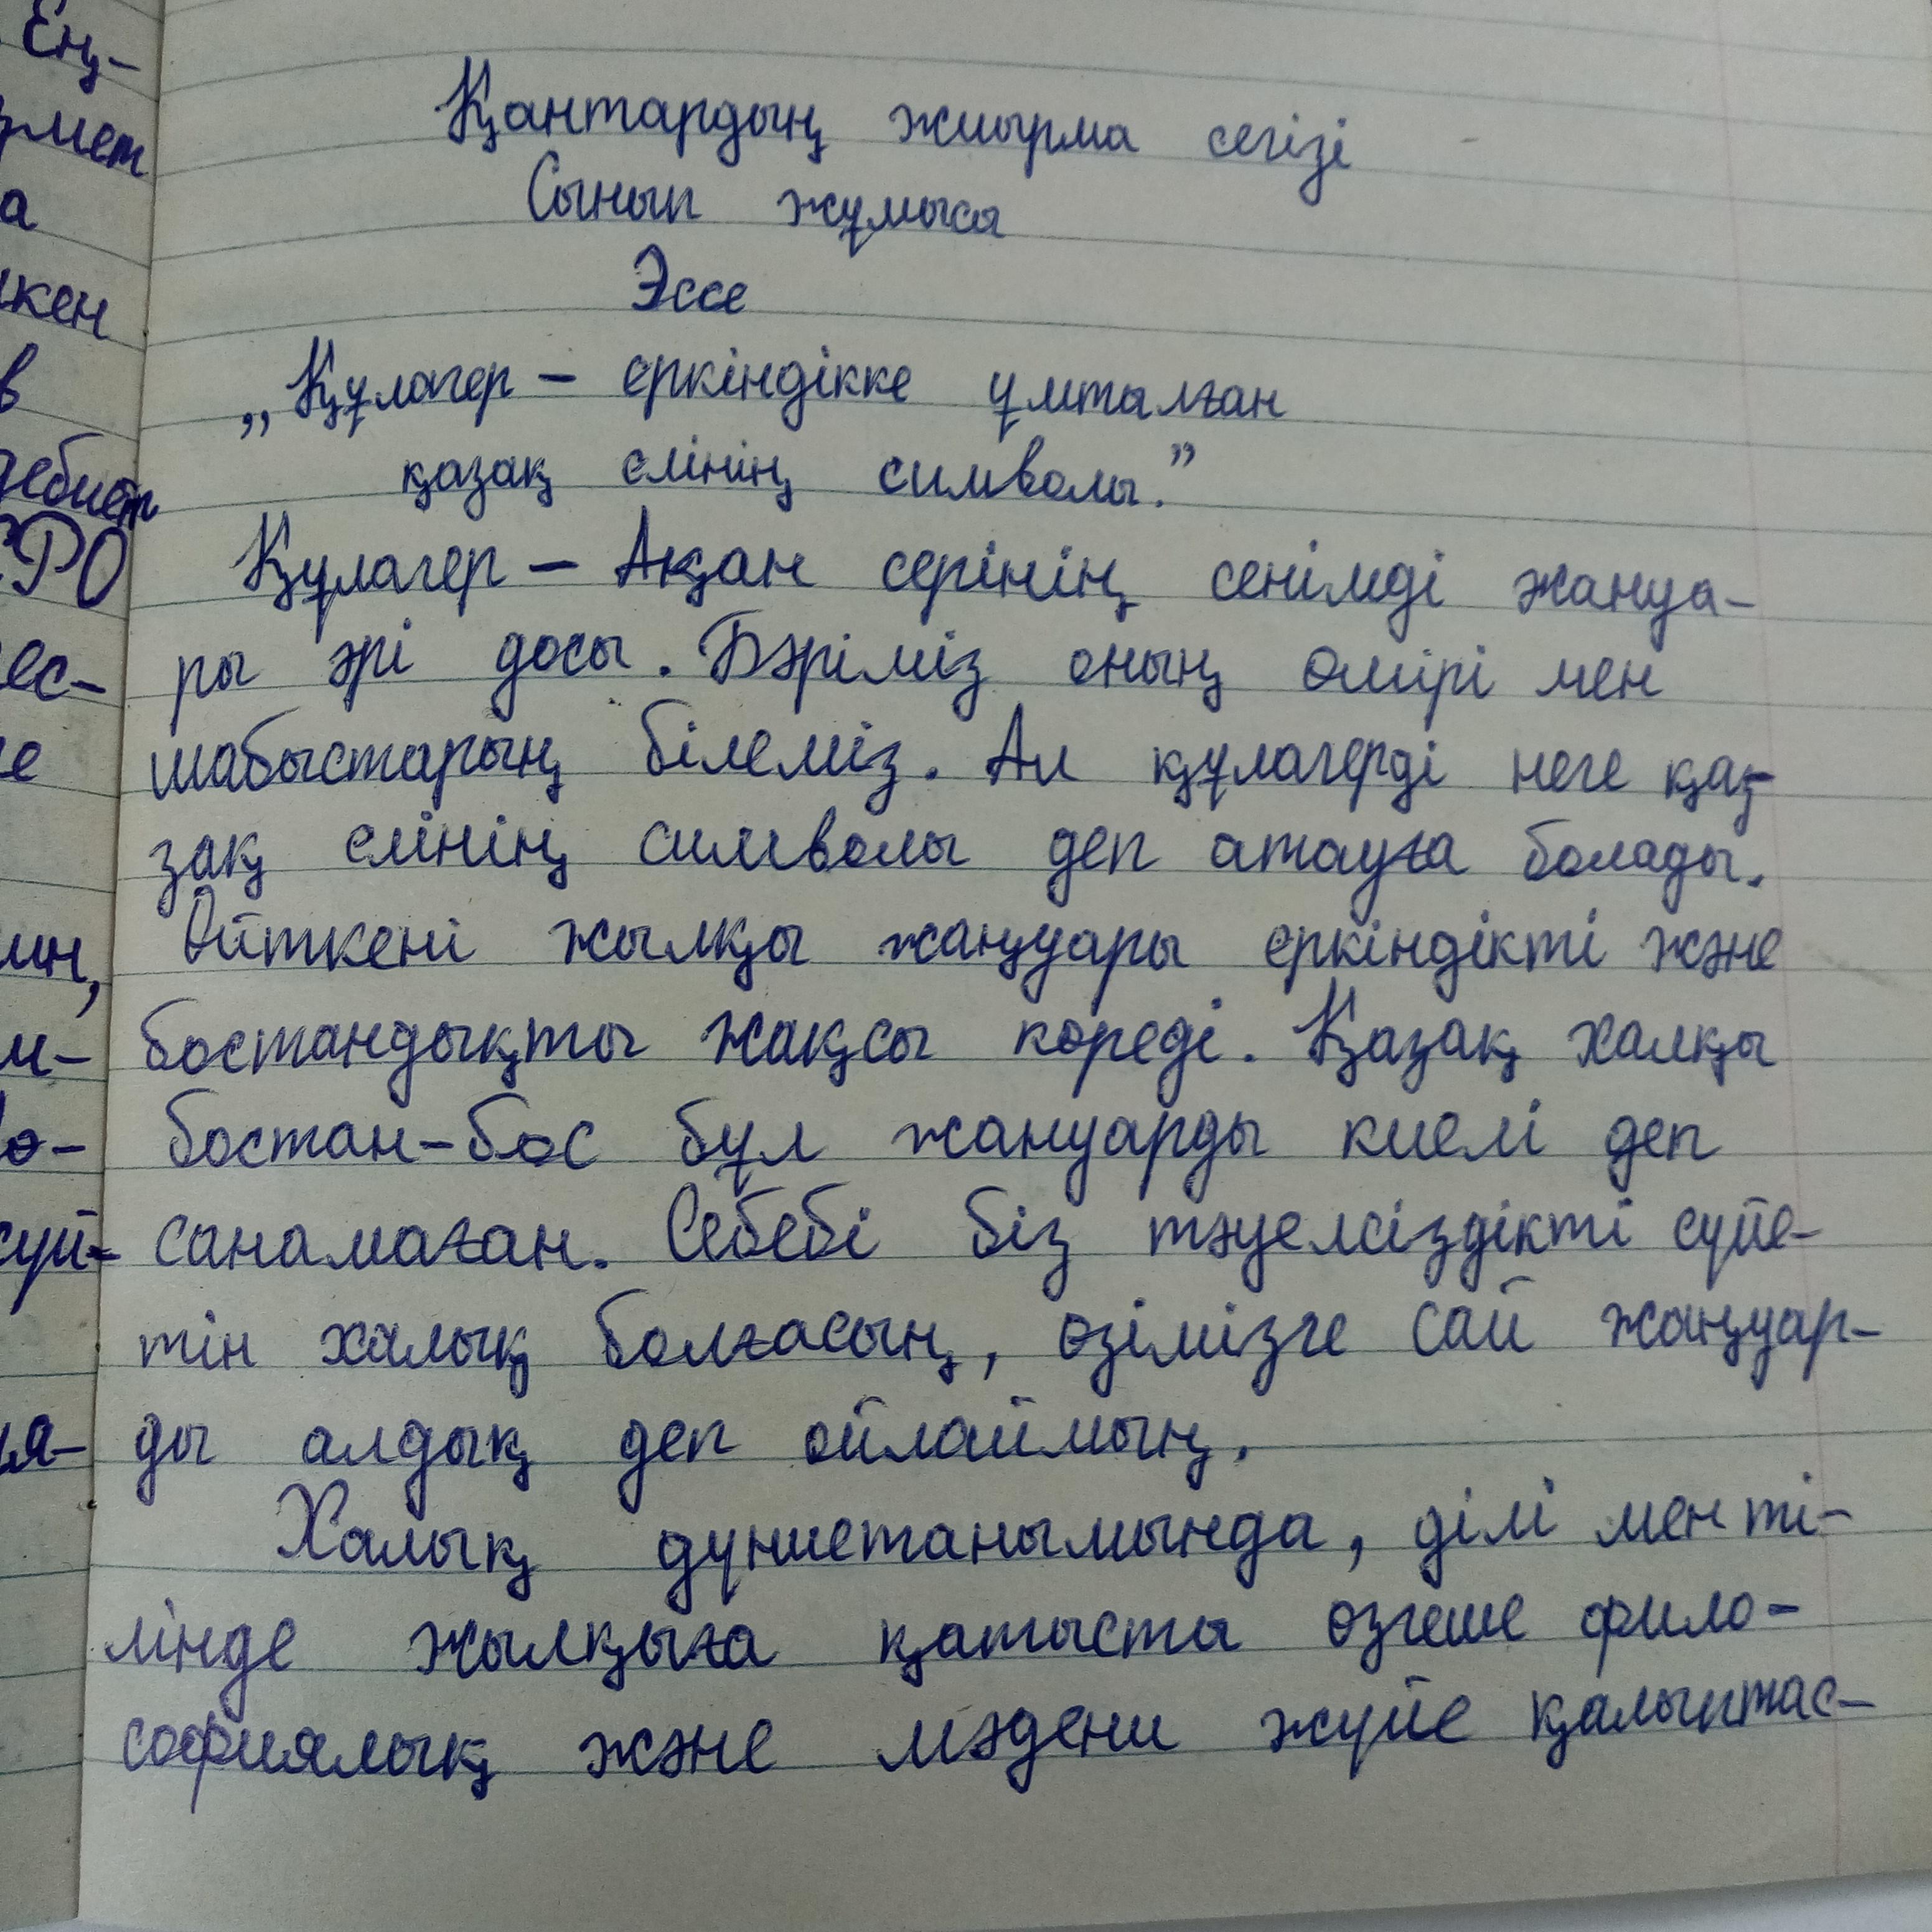 Қантардың жиырма сегізі
Сынып жұмысы
Эссе
„Құлагер – еркіндікке ұмтылған
қазақ елінің символы."
Құлагер – Ақан серінің сенімді жануа-
ры әрі досы. Бәріміз оның өмірі мен
шабыстарың білеміз. Ал құлагерді неге қаз-
зақ елінің символы деп атауға болады.
Өйткені жылқы жаңуары еркіндікті және
бостандықты жақсы көреді. Қазақ халқы
бостан-бос бұл жануарды киелі деп
санамаған. Себебі біз тәуелсіздікті сүйе-
тін халық болғасың, өзімізге сай жаңуар-
ды алдық деп ойлаймың.
Халық дүниетанымында, ділі мен ті-
лінде жылқыға қатысты өзгеше фило-
софиялық және мәдени жүйе қалыптас-
Ең-
рмет
а
кен
в
дебиет
РО
ес-
е
ин,
м-
о-
сүй-
ия-